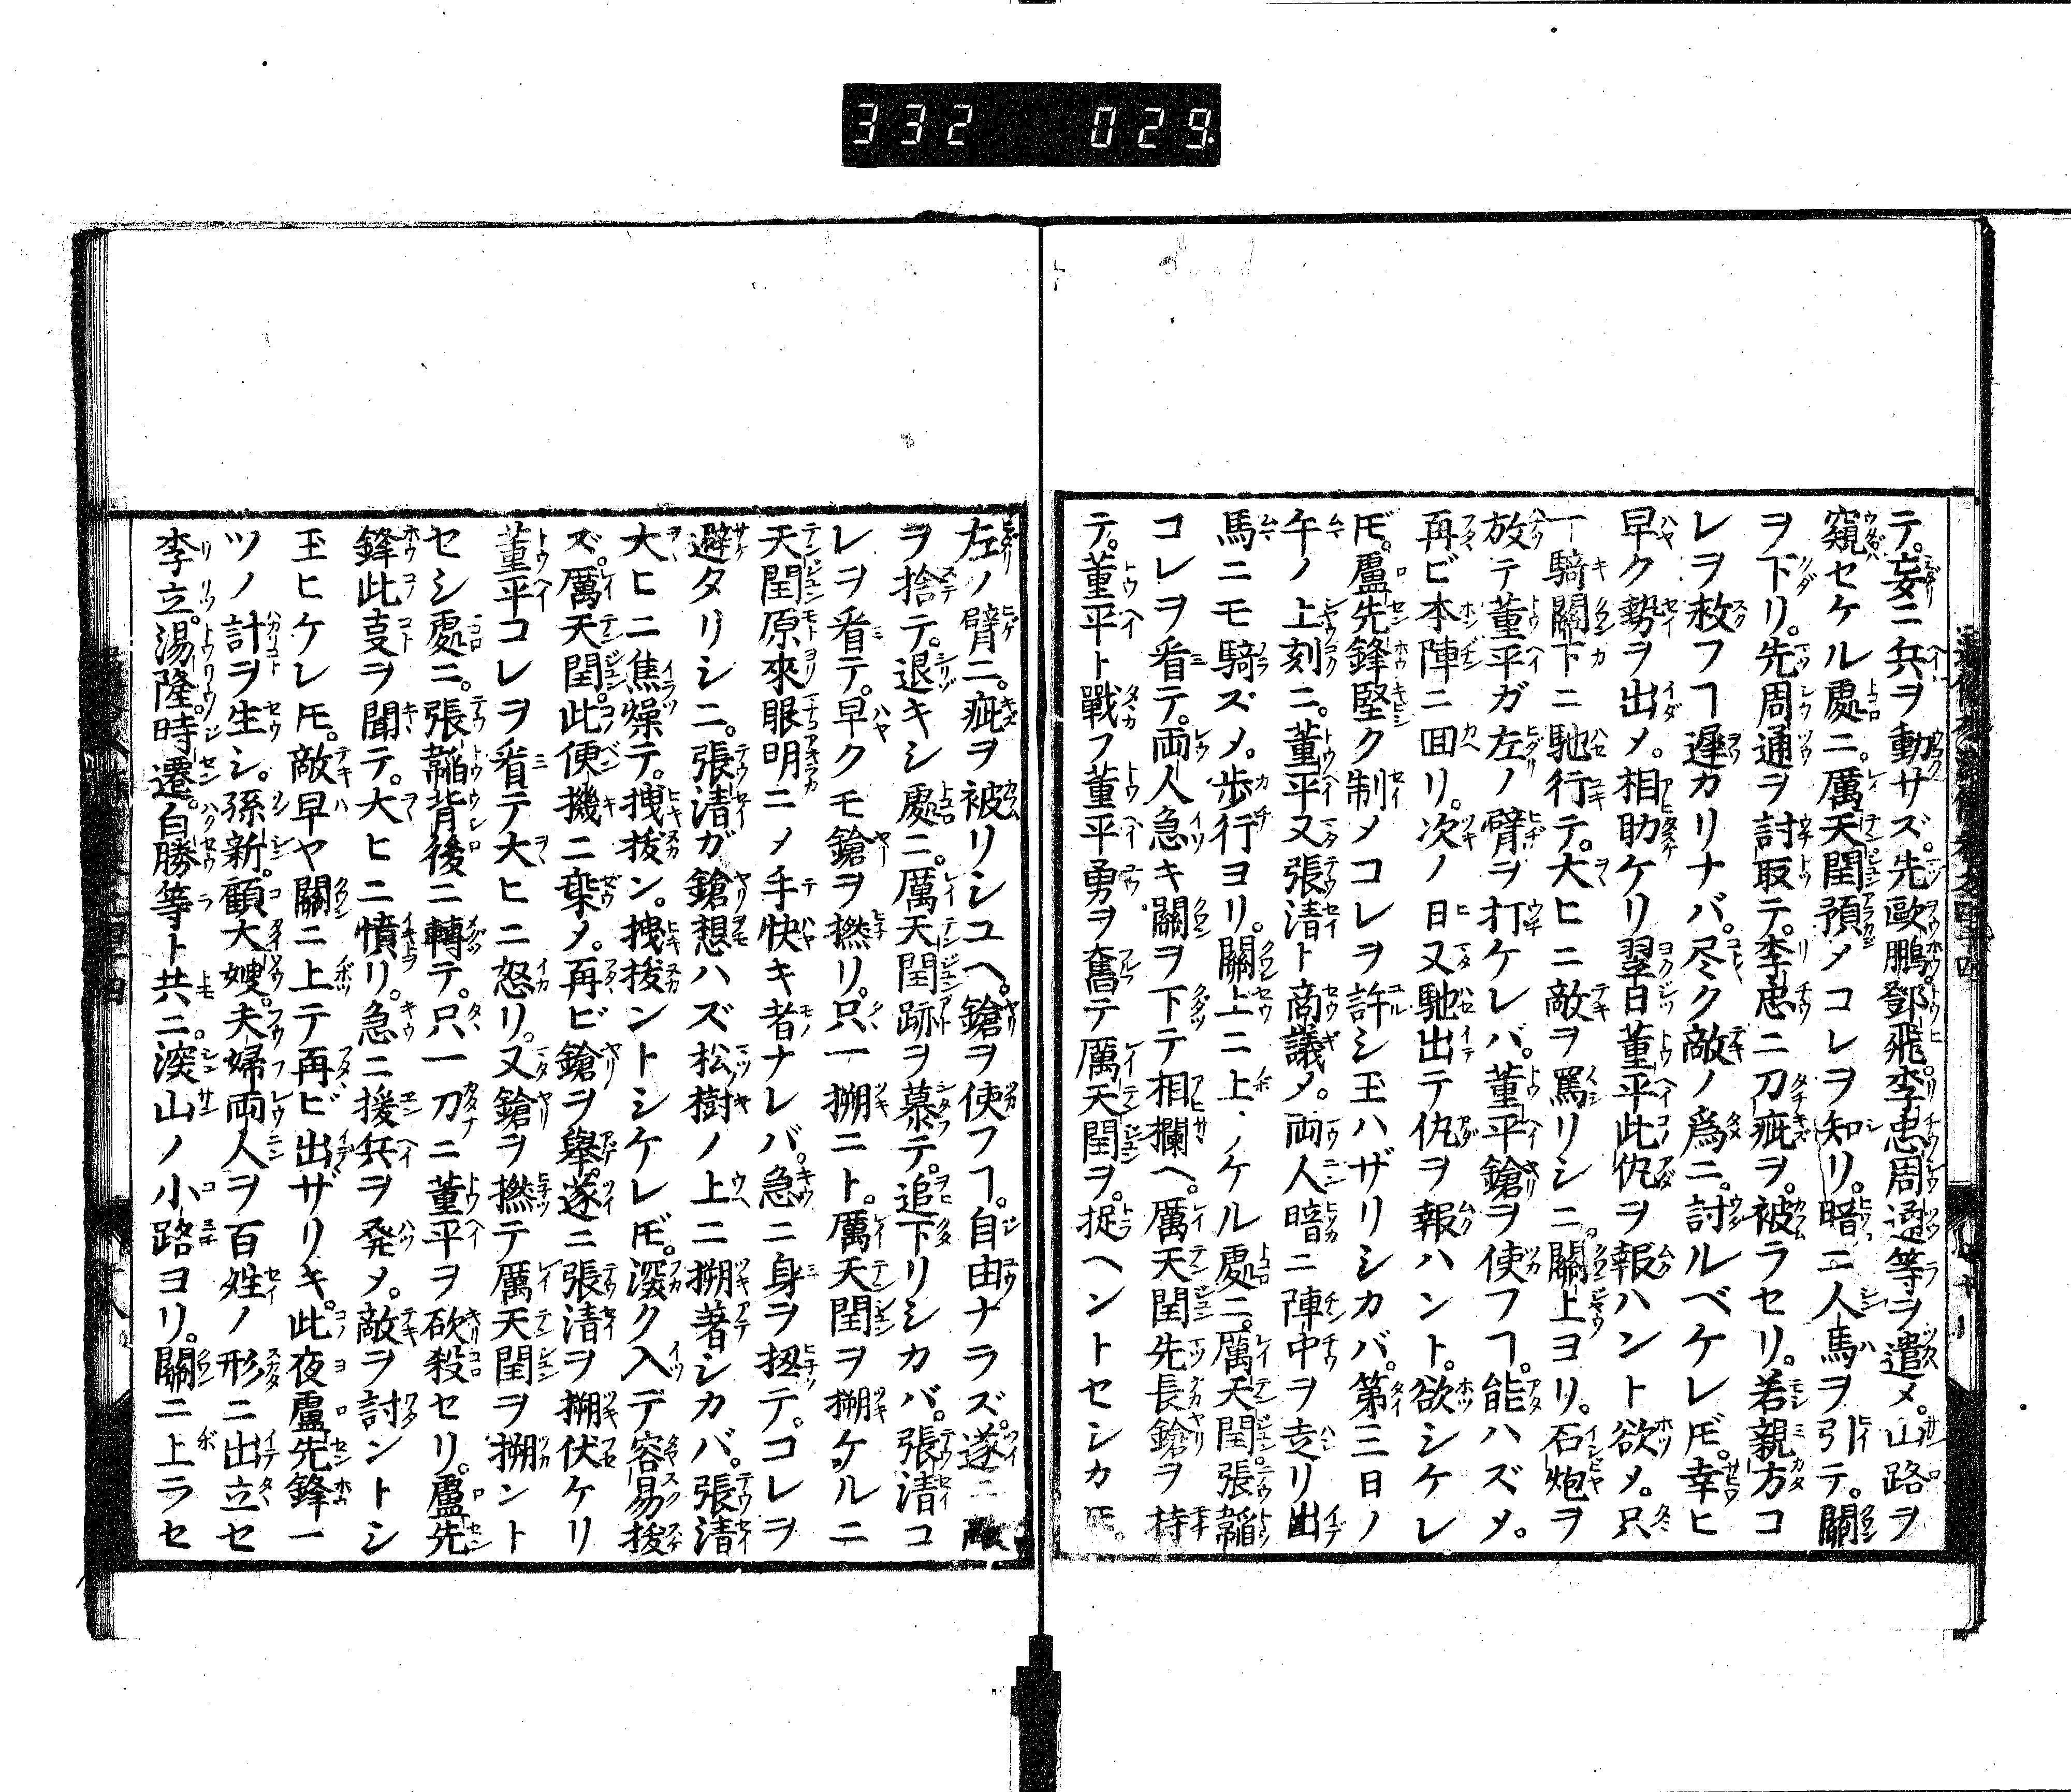 332 029.
テ。妄ニ兵ヲ動サズ。先歐鵬。鄧飛。李忠周通等ヲ遣メ。山路ヲ
窺セケル處ニ。厲天閏預メコレヲ知リ。暗ニ人馬ヲ引テ。關
ヲ下リ。先周通ヲ討取テ。李忠ニ刀疵ヲ。被ラセリ。若親方コ
レヲ救フヿ遲カリナバ。尽ク敵ノ爲ニ。討ルベケレ𪜈。幸ヒ
早ク勢ヲ出メ。相助ケリ翌日董平此仇ヲ報ハント欲メ。只
一騎關下ニ馳行テ。大ヒニ敵ヲ罵リシニ。關上ヨリ。石炮ヲ
放テ董平ガ左ノ臂ヲ打ケレバ。董平鎗ヲ使フヿ。能ハズメ。
再ビ本陣ニ回リ。次ノ日又馳出テ仇ヲ報ハント。欲シケレ
𪜈。盧先鋒堅ク制メコレヲ許シ玉ハザリシカバ。第三日ノ
午ノ上刻ニ。董平又張清ト商議メ。両人暗ニ陣中ヲ走リ出
馬ニモ騎ズメ。歩行ヨリ。關上ニ上ヽノケル處ニ。厲天閏。張韜
コレヲ看テ。両人急キ關ヲ下テ相攔ヘ。厲天閏先長鎗ヲ持
テ。董平ト戰フ董平勇ヲ奮テ厲天閏ヲ。捉ヘントセシカ𪜈。
左ノ臂ニ。疵ヲ被リシユヘ。鎗ヲ使フヿ。自由ナラズ。遂ニ敵
ヲ捨テ。退キシ處ニ。厲天閏跡ヲ慕テ。追下リシカバ。張清コ
レヲ看テ。早クモ鎗ヲ撚リ。只一搠ニト。厲天閏ヲ搠ケルニ
天閏原來眼明ニメ手快キ者ナレバ。急ニ身ヲ扭テ。コレヲ
避タリシニ。張清ガ鎗想ハズ松樹ノ上ニ搠著シカバ。張清
大ヒニ焦燥テ。拽拔ン。拽拔ントシケレ𪜈。深ク入デ容易拔
ズ。厲天閏。此便機ニ乗メ。再ビ鎗ヲ擧。遂ニ張清ヲ搠伏ケリ
董平コレヲ看テ大ヒニ怒リ。又鎗ヲ撚テ厲天閏ヲ搠ント
セシ處ニ。張韜背後ニ轉テ。只一刀ニ董平ヲ砍殺セリ。盧先
鋒此叓ヲ聞テ。大ヒニ憤リ。急ニ援兵ヲ発メ。敵ヲ討ントシ
玉ヒケレ𪜈。敵早ヤ關ニ上テ再ビ出ザリキ。此夜盧先鋒一
ツノ計ヲ生シ。孫新。顧大嫂。夫婦両人ヲ百姓ノ形ニ出立セ
李立。湯隆。時遷。白勝等ト共ニ。深山ノ小路ヨリ。關ニ上ラセ